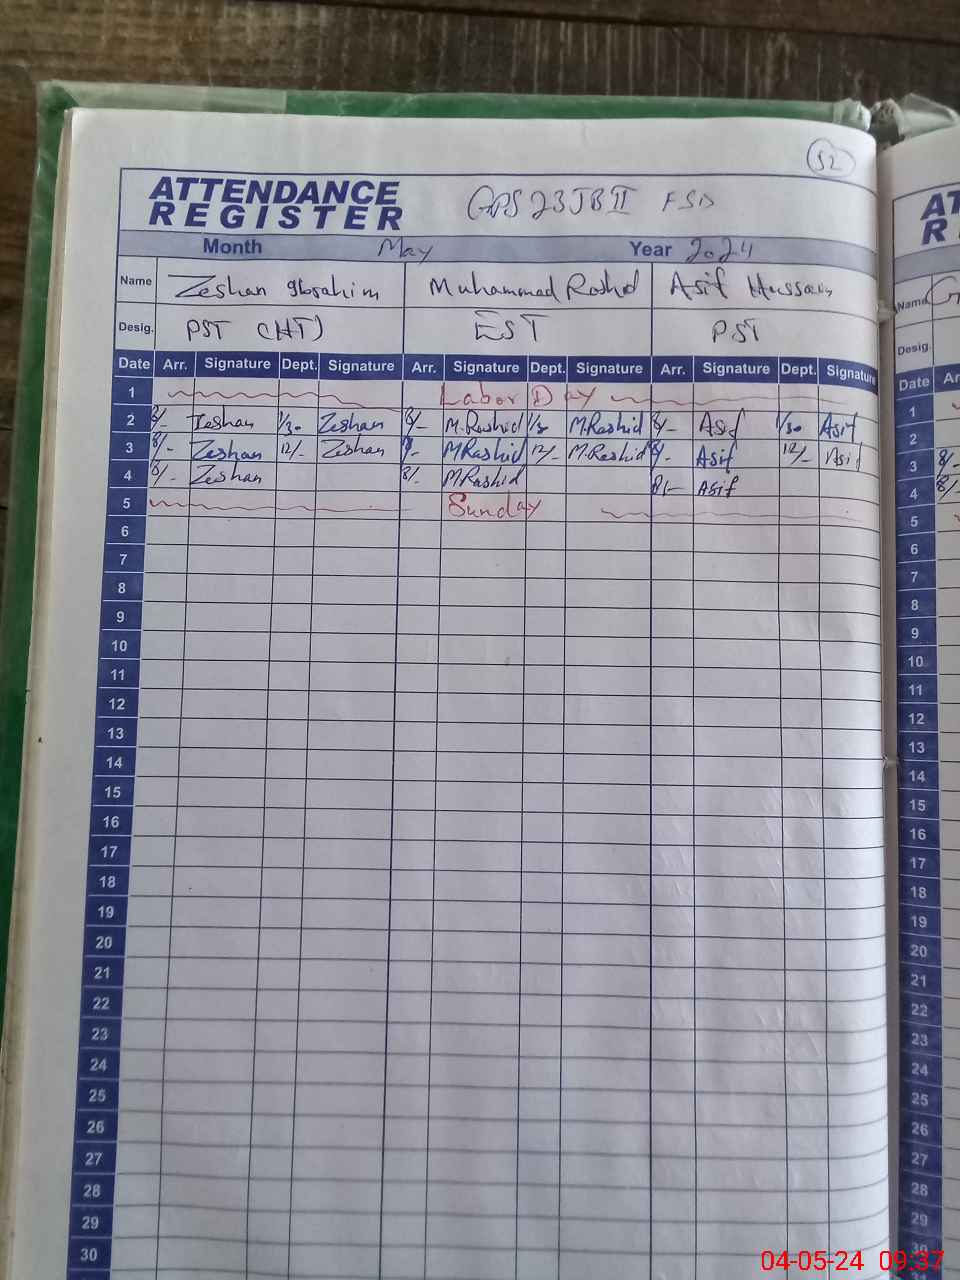 52
ATTENDANCE
REGISTER
GPS 23 JB II FSD
Month May Year 2024
Name Zeshan Ibrahim Muhammad Rashid Asif Hussain
Desig. PST (HT) EST PST
Date Arr. Signature Dept. Signature Arr. Signature Dept. Signature Arr. Signature Dept. Signature
1 Labor Day
2 8/- Zeshan 1/30 Zeshan 8/- M.Rashid 1/30 M.Rashid 8/- Asif 1/30 Asif
3 8/- Zeshan 12/- Zeshan 8/- MRashid 12/- M.Rashid 8/- Asif 12/- Asif
4 8/- Zeshan 8/- MRashid 8/- Asif
5 Sunday
6
7
8
9
10
11
12
13
14
15
16
17
18
19
20
21
22
23
24
25
26
27
28
29
30
AT
R
Name
Desig.
Date Ar
1
2
3 8/-
4 8/-
5
6
7
8
9
10
11
12
13
14
15
16
17
18
19
20
21
22
23
24
25
26
27
28
29
30
04-05-24 09:37